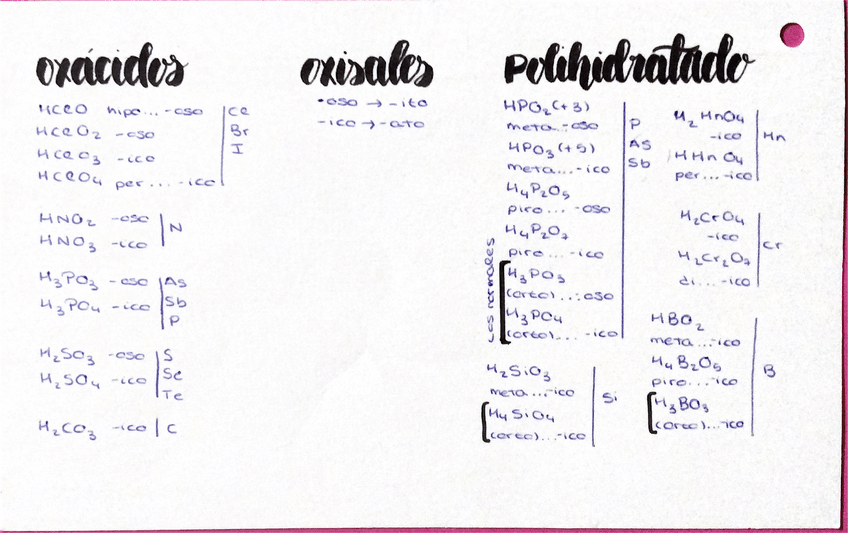 oxácidos
HClO hipo... -oso
HClO₂ -oso
HClO₃ -ico
HClO₄ per... -ico
Cl
Br
I
HNO₂ -oso
HNO₃ -ico
N
H₃PO₃ -oso
H₃PO₄ -ico
As
Sb
P
H₂SO₃ -oso
H₂SO₄ -ico
S
Se
Te
H₂CO₃ -ico
C
oxisales
-oso → -ito
-ico → -ato
Polihidratado
HPO₂ (+3)
meta...-oso
HPO₃ (+5)
meta...-ico
H₄P₂O₅
piro... -oso
H₄P₂O₇
piro... -ico
Los normales
H₃PO₃
(orto)...-oso
H₃PO₄
(orto)... -ico
P
As
Sb
H₂SiO₃
meta...-ico
H₄SiO₄
(orto)...-ico
Si
H₂MnO₄
-ico
HMnO₄
per...-ico
Mn
H₂CrO₄
-ico
H₂Cr₂O₇
di...-ico
Cr
HBO₂
meta...-ico
H₄B₂O₅
piro...-ico
H₃BO₃
(orto)...-ico
B